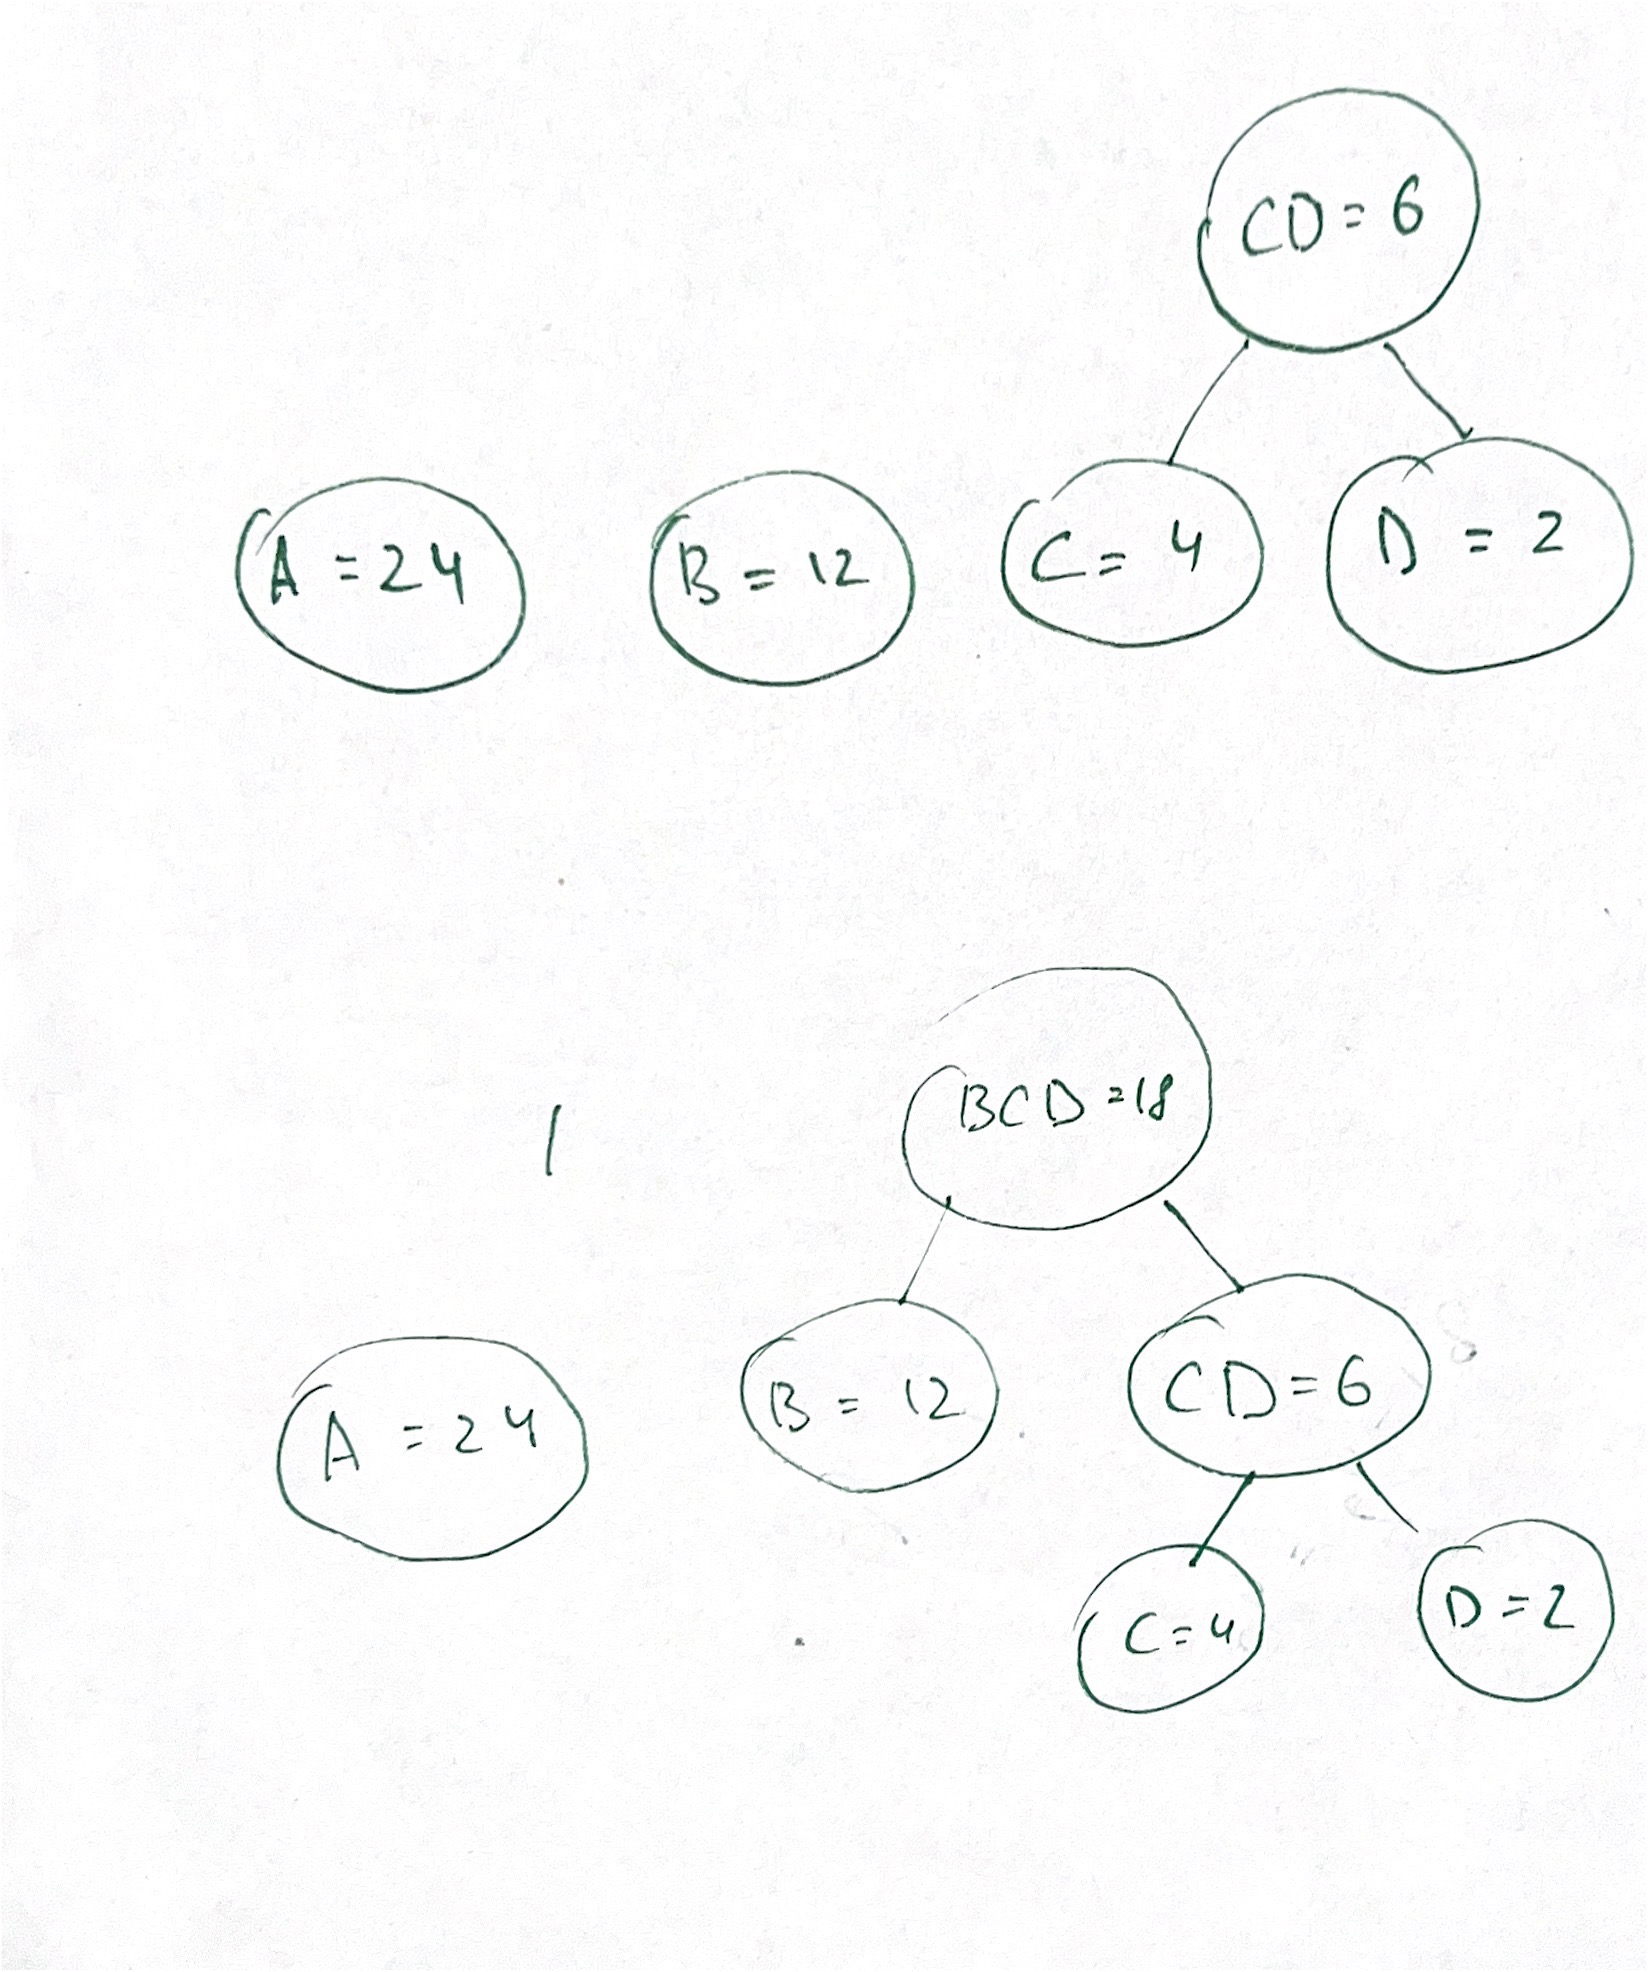 CD = 6
A = 24 B = 12 C = 4 D = 2
BCD = 18
B = 12 CD = 6
A = 24
C = 4 D = 2